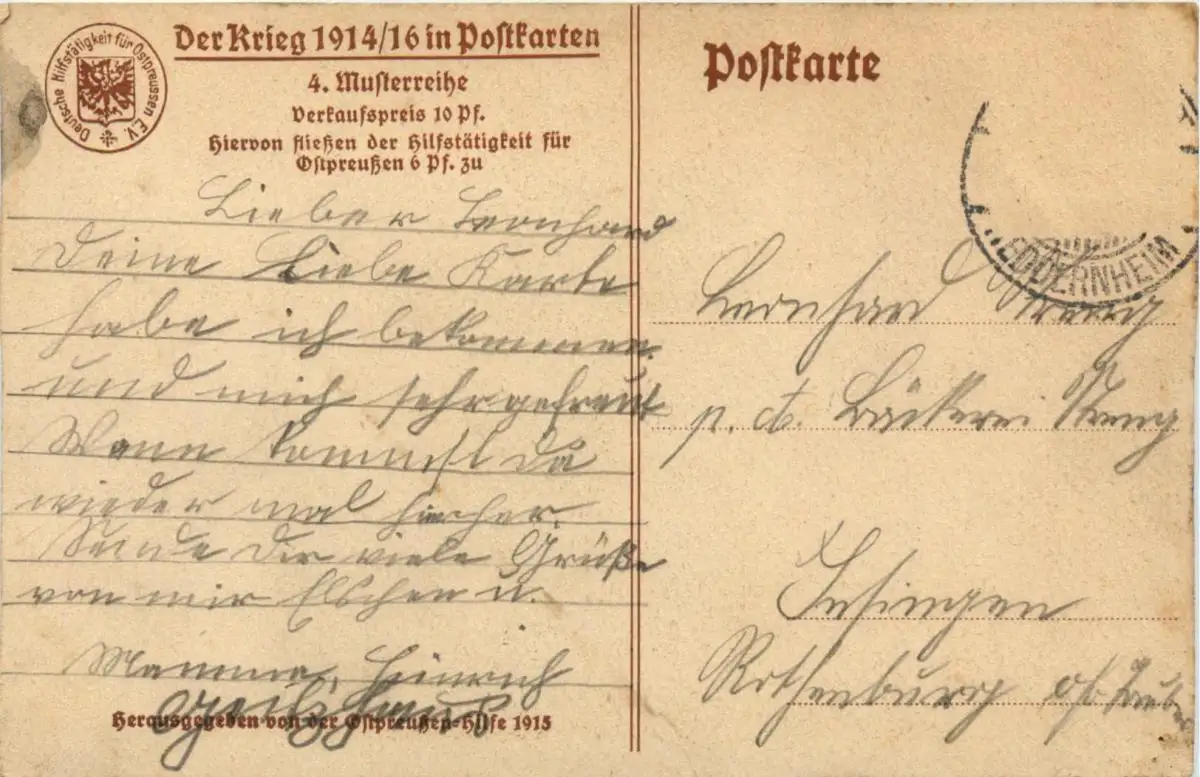 Deutsche Hilfstätigkeit für Ostpreussen E.V.
Der Krieg 1914/16 in Postkarten
4. Musterreihe
Verkaufspreis 10 Pf.
Hiervon fließen der Hilfstätigkeit für
Ostpreußen 6 Pf. zu
Lieber Leonhard
Deine Liebe Karte
habe ich bekommen
und mich sehr gefreut
Wann kommst Du
wieder mal hierher.
Sende Dir viele Grüße
von mir Elschen u.
Mamma, Heinrich
Herausgegeben von der Ostpreußen-Hilfe 1915
Postkarte
EDDERNHEIM
Leonhard Streng
p. A. Bäckerei Streng
Insingen
Rothenburg o/Taub